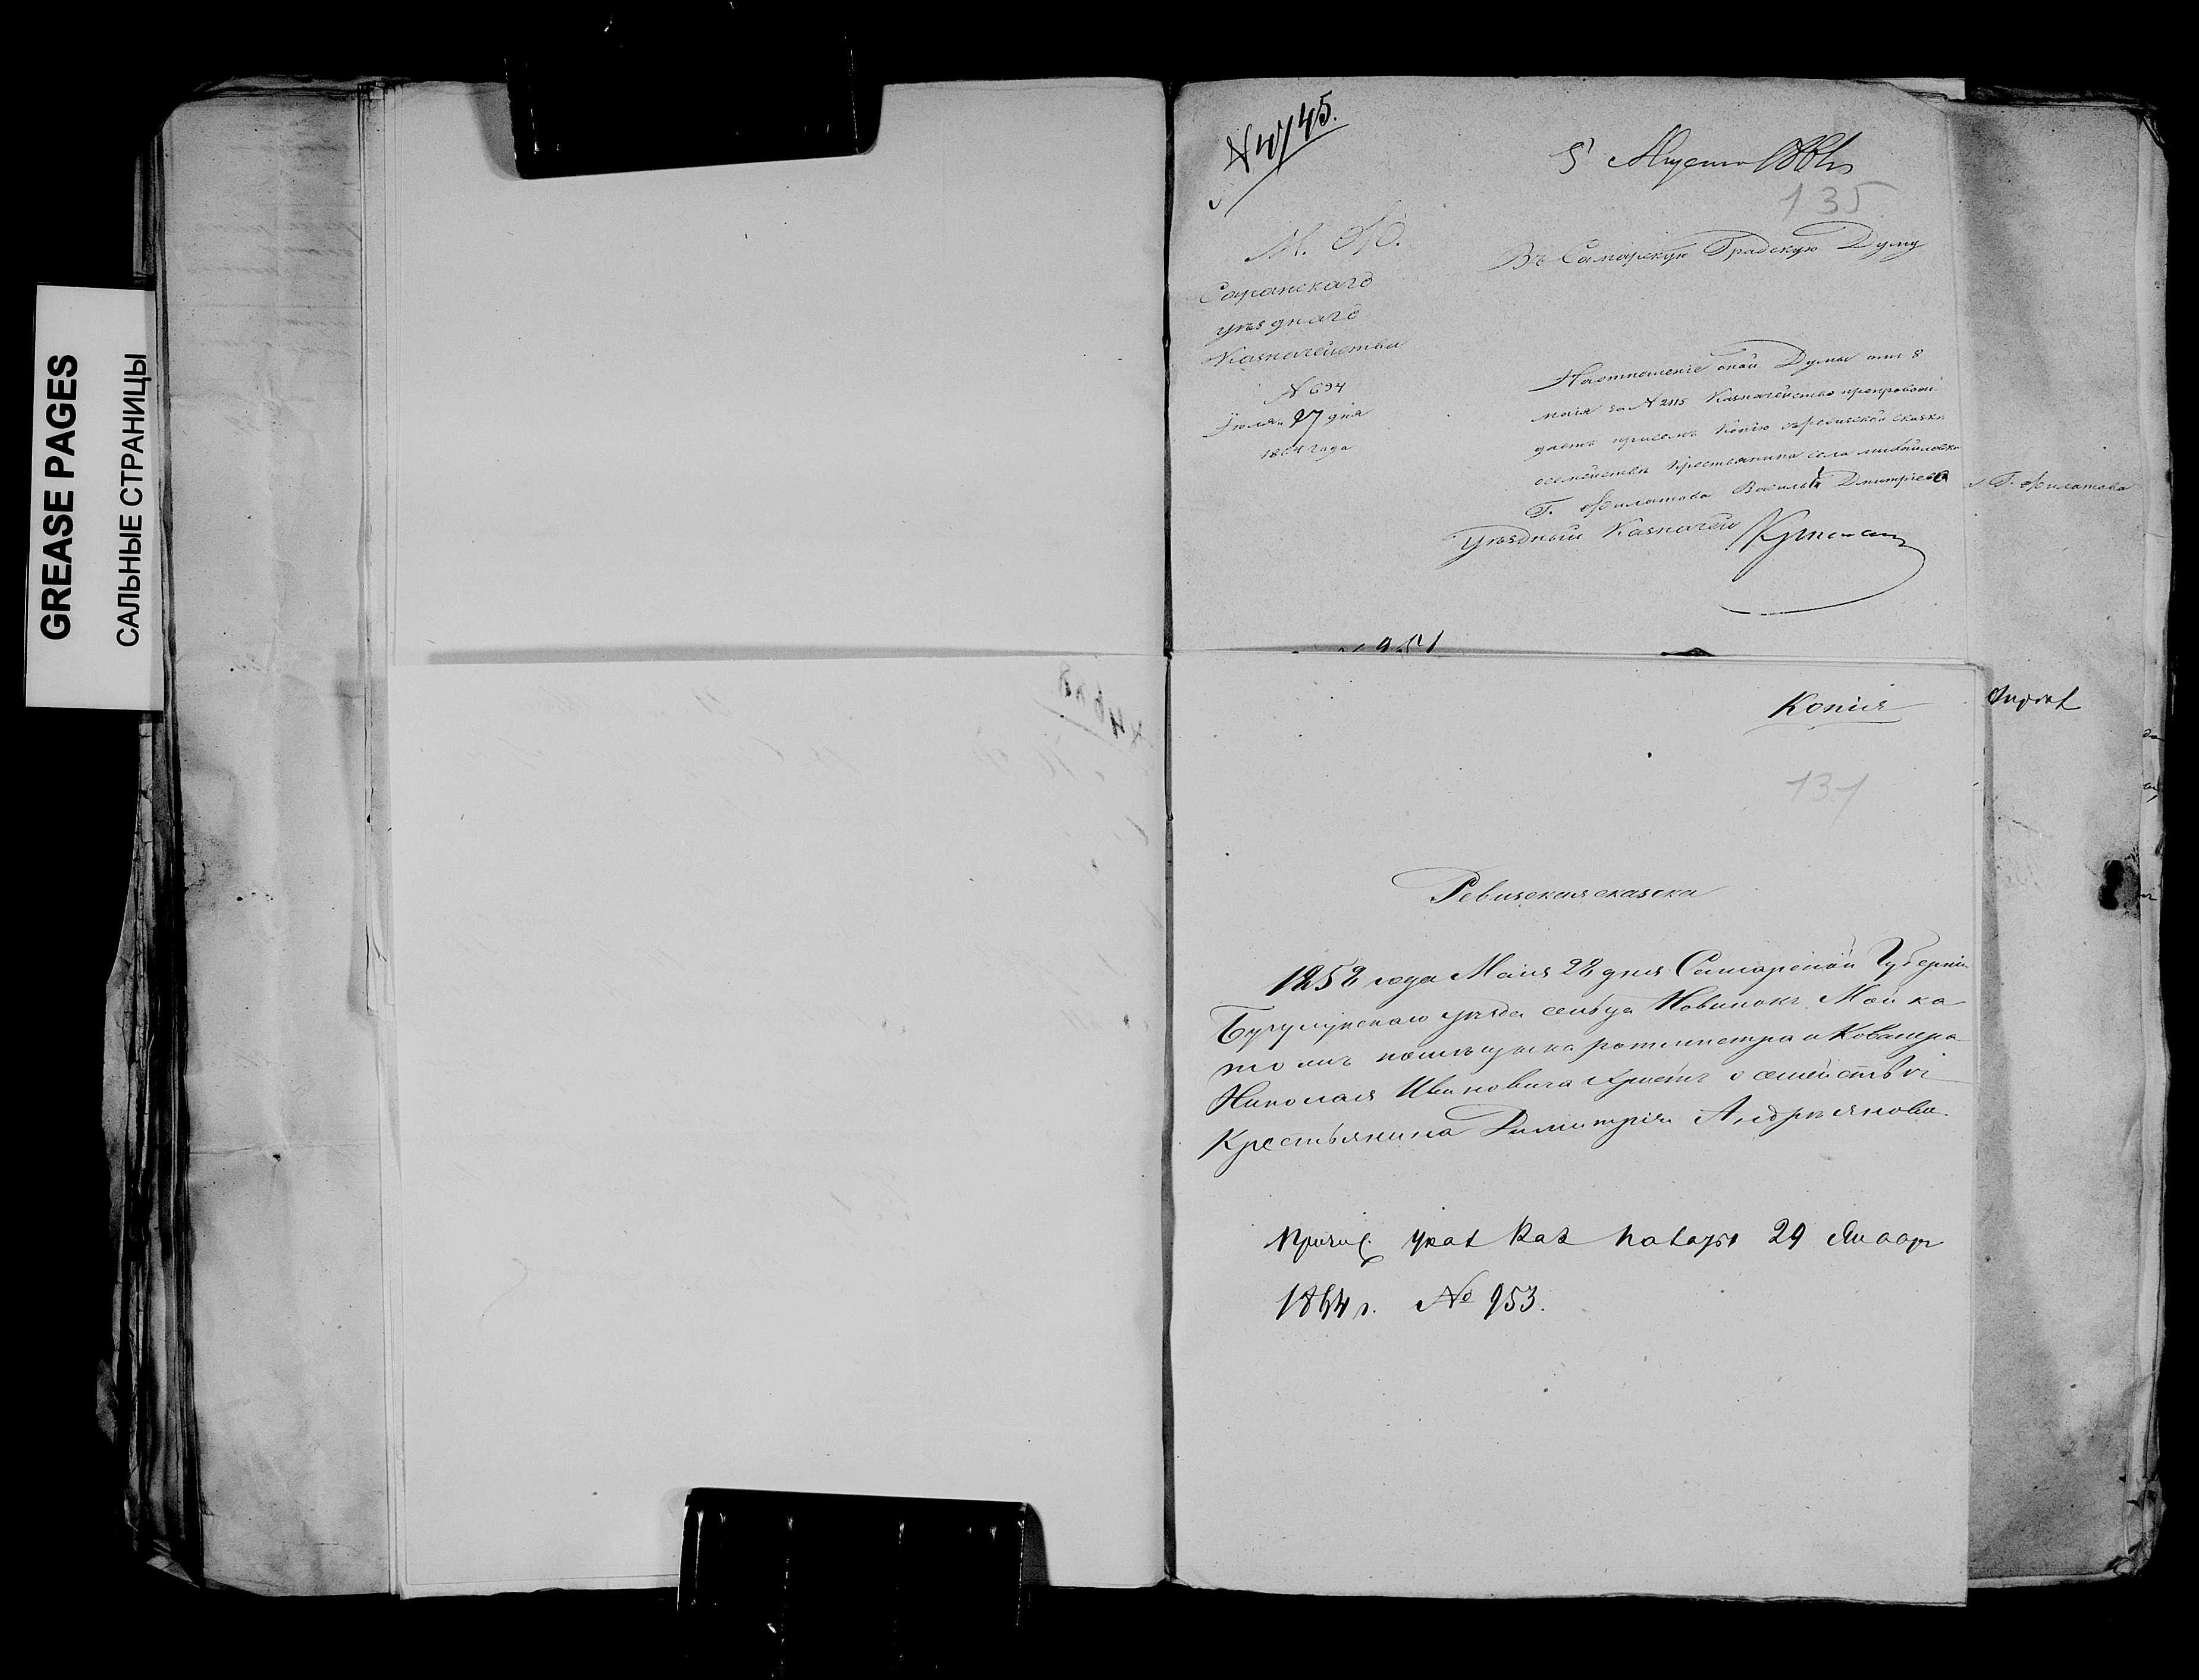 GREASE PAGES
САЛЬНЫЕ СТРАНИЦЫ
N 4745.
5 Августа
135
М. Ф.
Саранскаго
уѣзднаго
Казначейства
N 694
Іюля 27 дня
1864 года
Въ Самарскую Градскую Думу
На отношеніе оной Думы отъ 8
маія за N 2115 Казначейство препровож
даетъ при семъ Копію съ ревизской сказки
о семействѣ крестьянина села михайловка
Г. Филатова Василья Дмитріева
Г. Филатова
Уѣздный Казначей
Копія
131
Ревизская сказка
1858 года Маія 22 дня Самарской Губерніи
Бугульминскаго уѣзда сельца Новинокъ Май ка
помѣщика ротмистра и Ковалера
Николая Ивановича о семействѣ
Крестьянина Димитрія Андрѣянова
Причис. указ Каз Палаты 29 Января
1864 г. № 953.